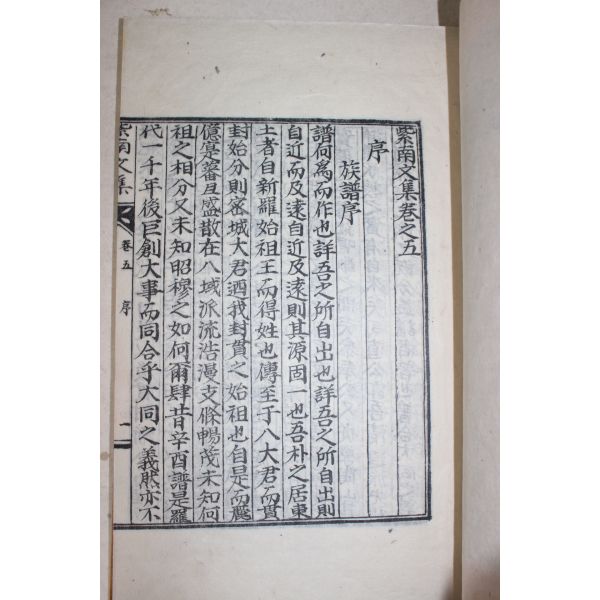 紫南文集卷之五
序
族譜序
譜何爲而作也詳吾之所自出也詳吾之所自出則
自近而及遠自近及遠則其源固一也吾朴之居東
土者自新羅始祖王而得姓也傳至于八大君而貫
封始分則密城大君迺我封貫之始祖也自是而麗
億寔蕃且盛散在八域派流浩漫支條暢茂未知何
祖之相分又未知昭穆之如何爾肆昔辛酉譜是羅
代一千年後巨創大事而同合乎大同之義然亦不
紫南文集
卷五
序
一